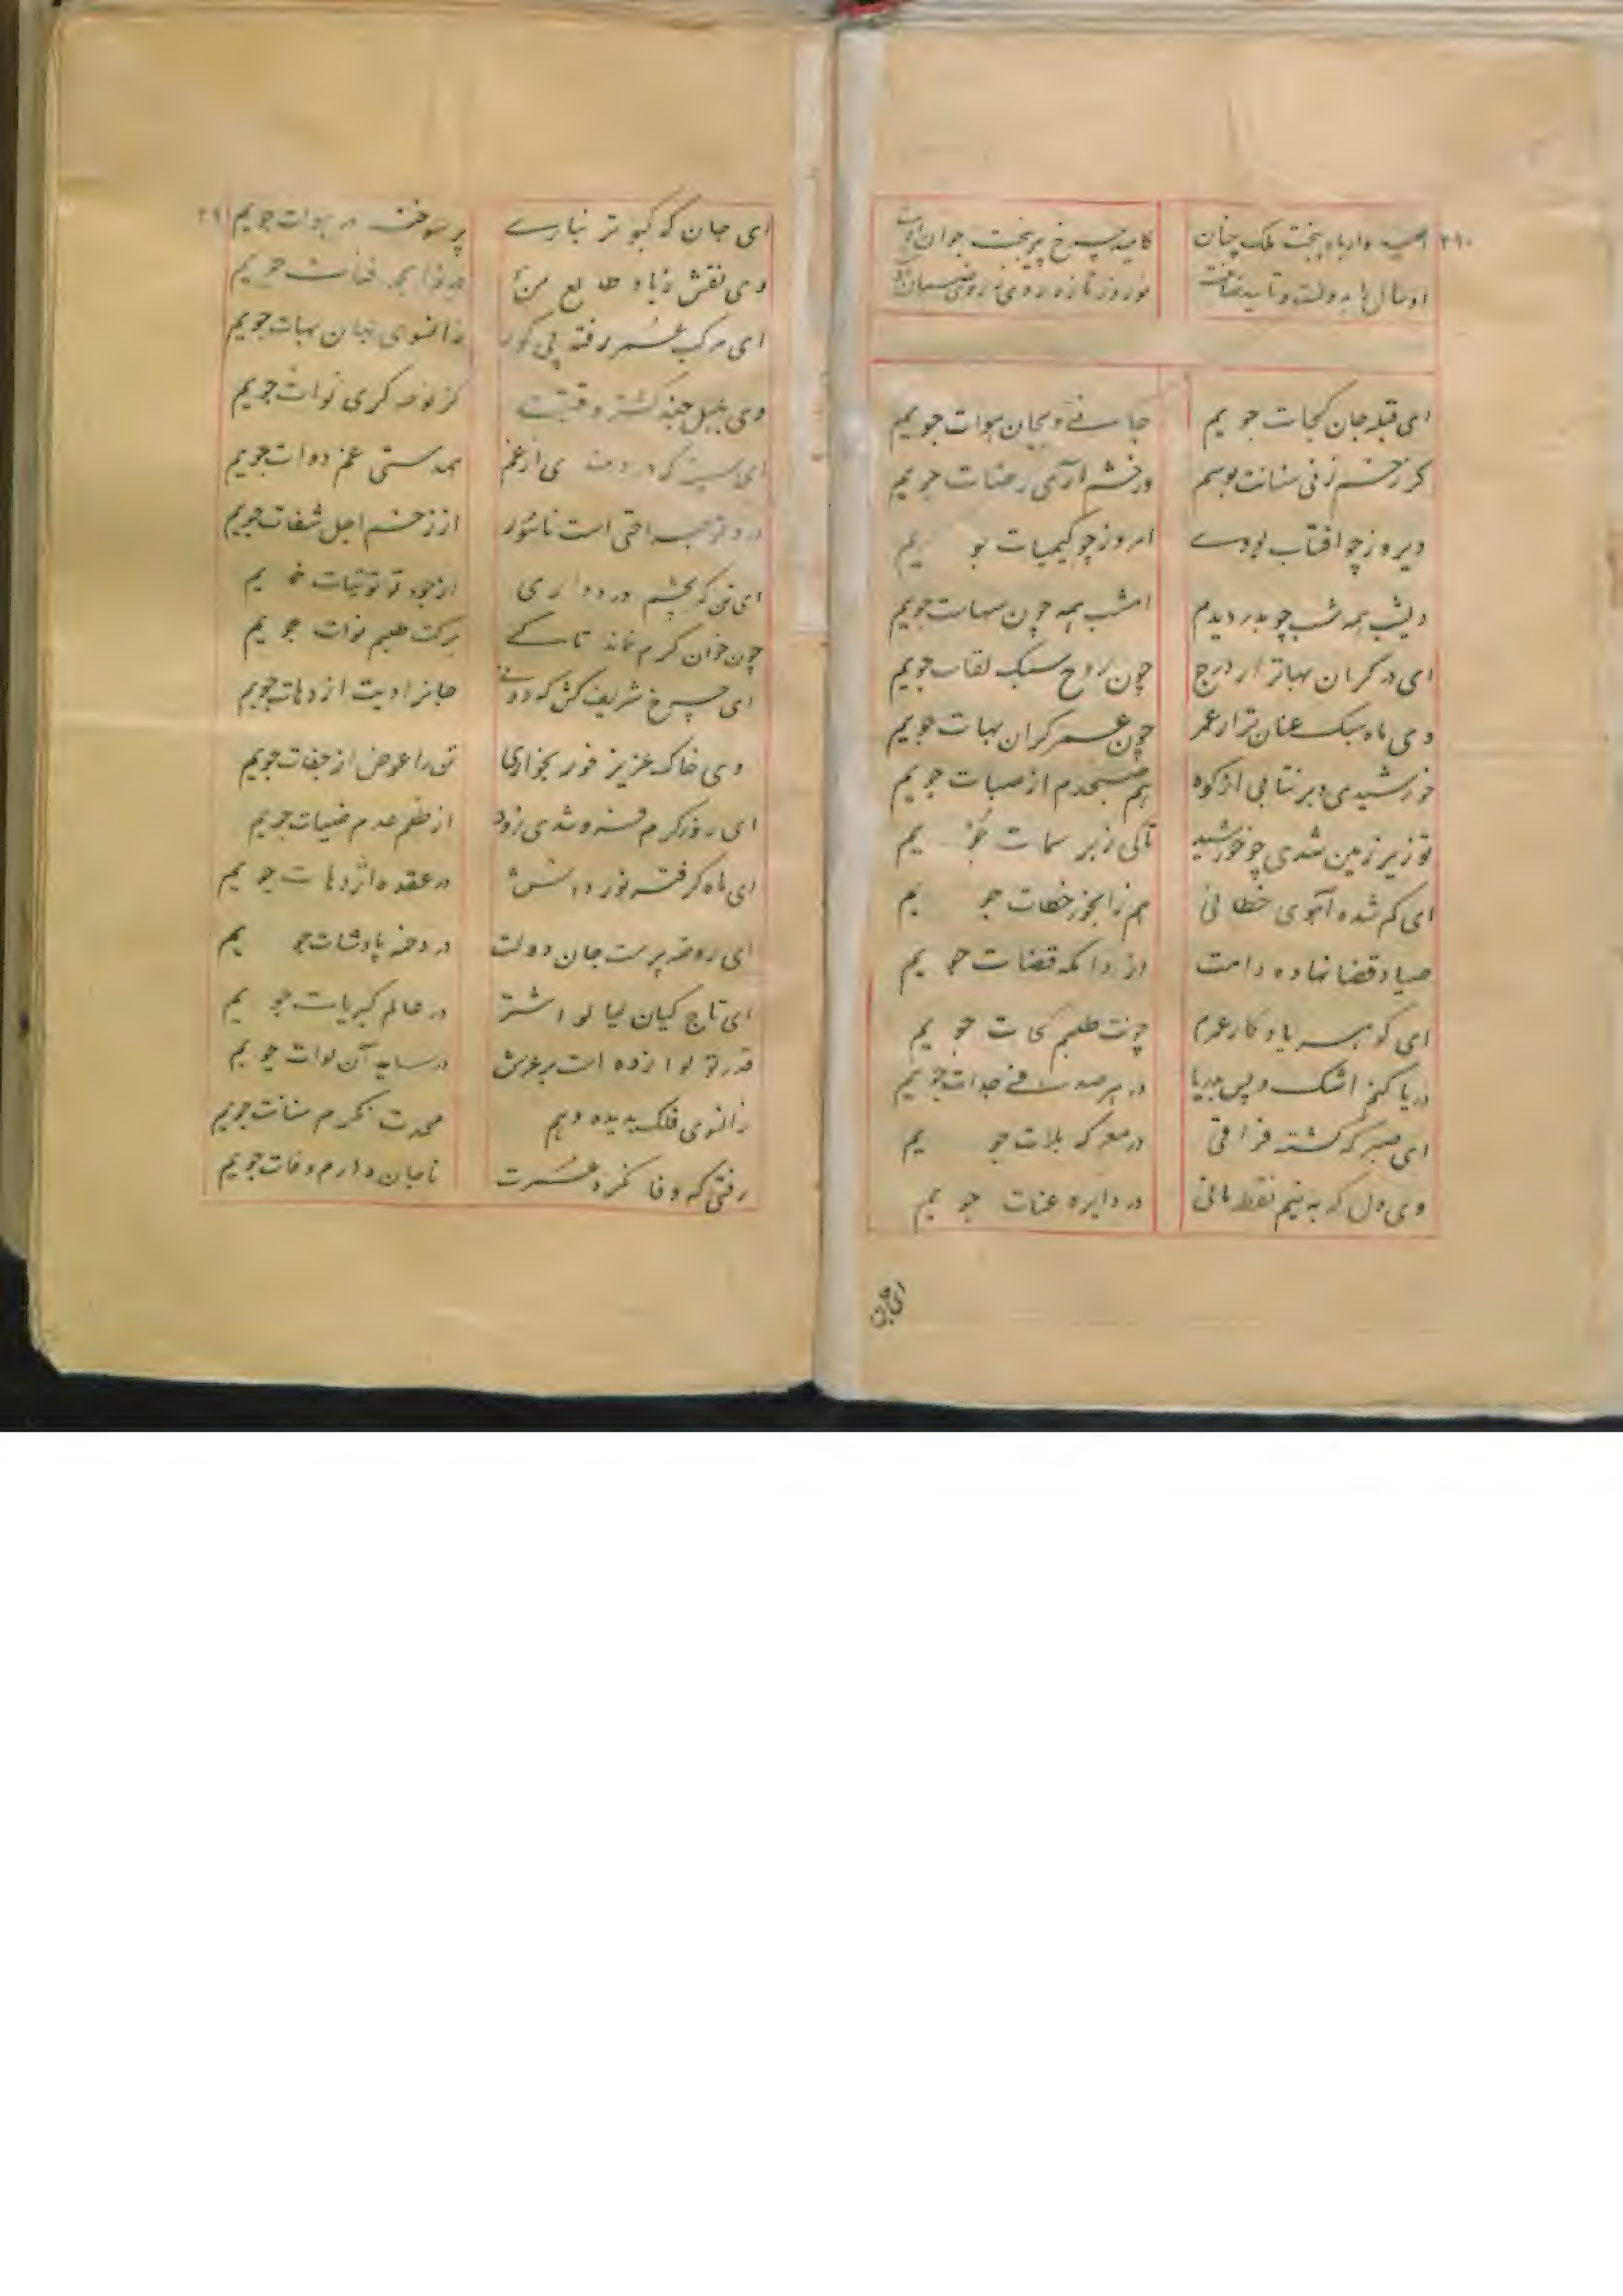 ۲۹۰
امید وار باد ببخت ملک چنان کامید چرخ پیر ببخت جوان اوست
او سال را بدولت و تایید نوروز تازه روی ز روی
ای قبله جان کجات جویم جانی و بجان هوات جویم
گر زخم زنی سنانت بوسم ور خشم آری رضات جویم
دیروز چو افتاب بودے امروز چو کیمیات جویم
دیشب همه شب چو بدر دیدم امشب همه چون سهات جویم
ای در گران بهاتر از درج چون روح سبک لقات جویم
وی ماه سبک عنان تر از عمر چون عمر گران بهات جویم
خورشیدی و برنتابی از کوه هم صبحدم از صبات جویم
تو زیر زمین شدی چو خورشید تا کی زبر سمات جویم
ای گم شده آهوی خطائی هم زابخور خطات جویم
صیاد قضا نهاده دامت از دامگه قضات جویم
ای گوهر یادگار عمرم چونت طلبم کجات جویم
دریا کنم اشک و پس بدریا در هر صدفے جدات جویم
ای صبر که کشته فراقی در معرکه بلات جویم
وی دل که به نیم نقطه مانی در دایره عنات جویم
ای جان
۲۹۱
ای جان که کبوتر نیازے پر سوخته در هوات جویم
وی نقش زیاد طالع من
ای مرکب عمر رفته پی کور زانسوی جهان بهات جویم
وی کز نوحه گری نوات جویم
ای سینه که دردمندی از غم همدستی غم دوات جویم
درد تو جراحتی است ناسور از زخم اجل شفات جویم
ای تن که بچشم درد داری از جود تو توتیات جویم
چون خوان کرم نماند تا کے برکت طلبم نوات جویم
ای چرخ شریف کش که دونی جانرا دیت از دهات جویم
وی خاک عزیز خور بخواری تن را عوض از جفات جویم
ای روز کرم فرو شدی زود از ظلم عدم ضیات جویم
ای ماه گرفته نور دانش در عقده اژدهات جویم
ای روضه پرست جان دولت در دخمه پادشات جویم
ای تاج کیان در عالم کبریات جویم
قدر تو لوا زده است بر عرش در سایه آن لوات جویم
زانسوی فلک بدیده وهم همت نگرم سنات جویم
رفتی که وفا نکرد عمرت تا جان دارم وفات جویم